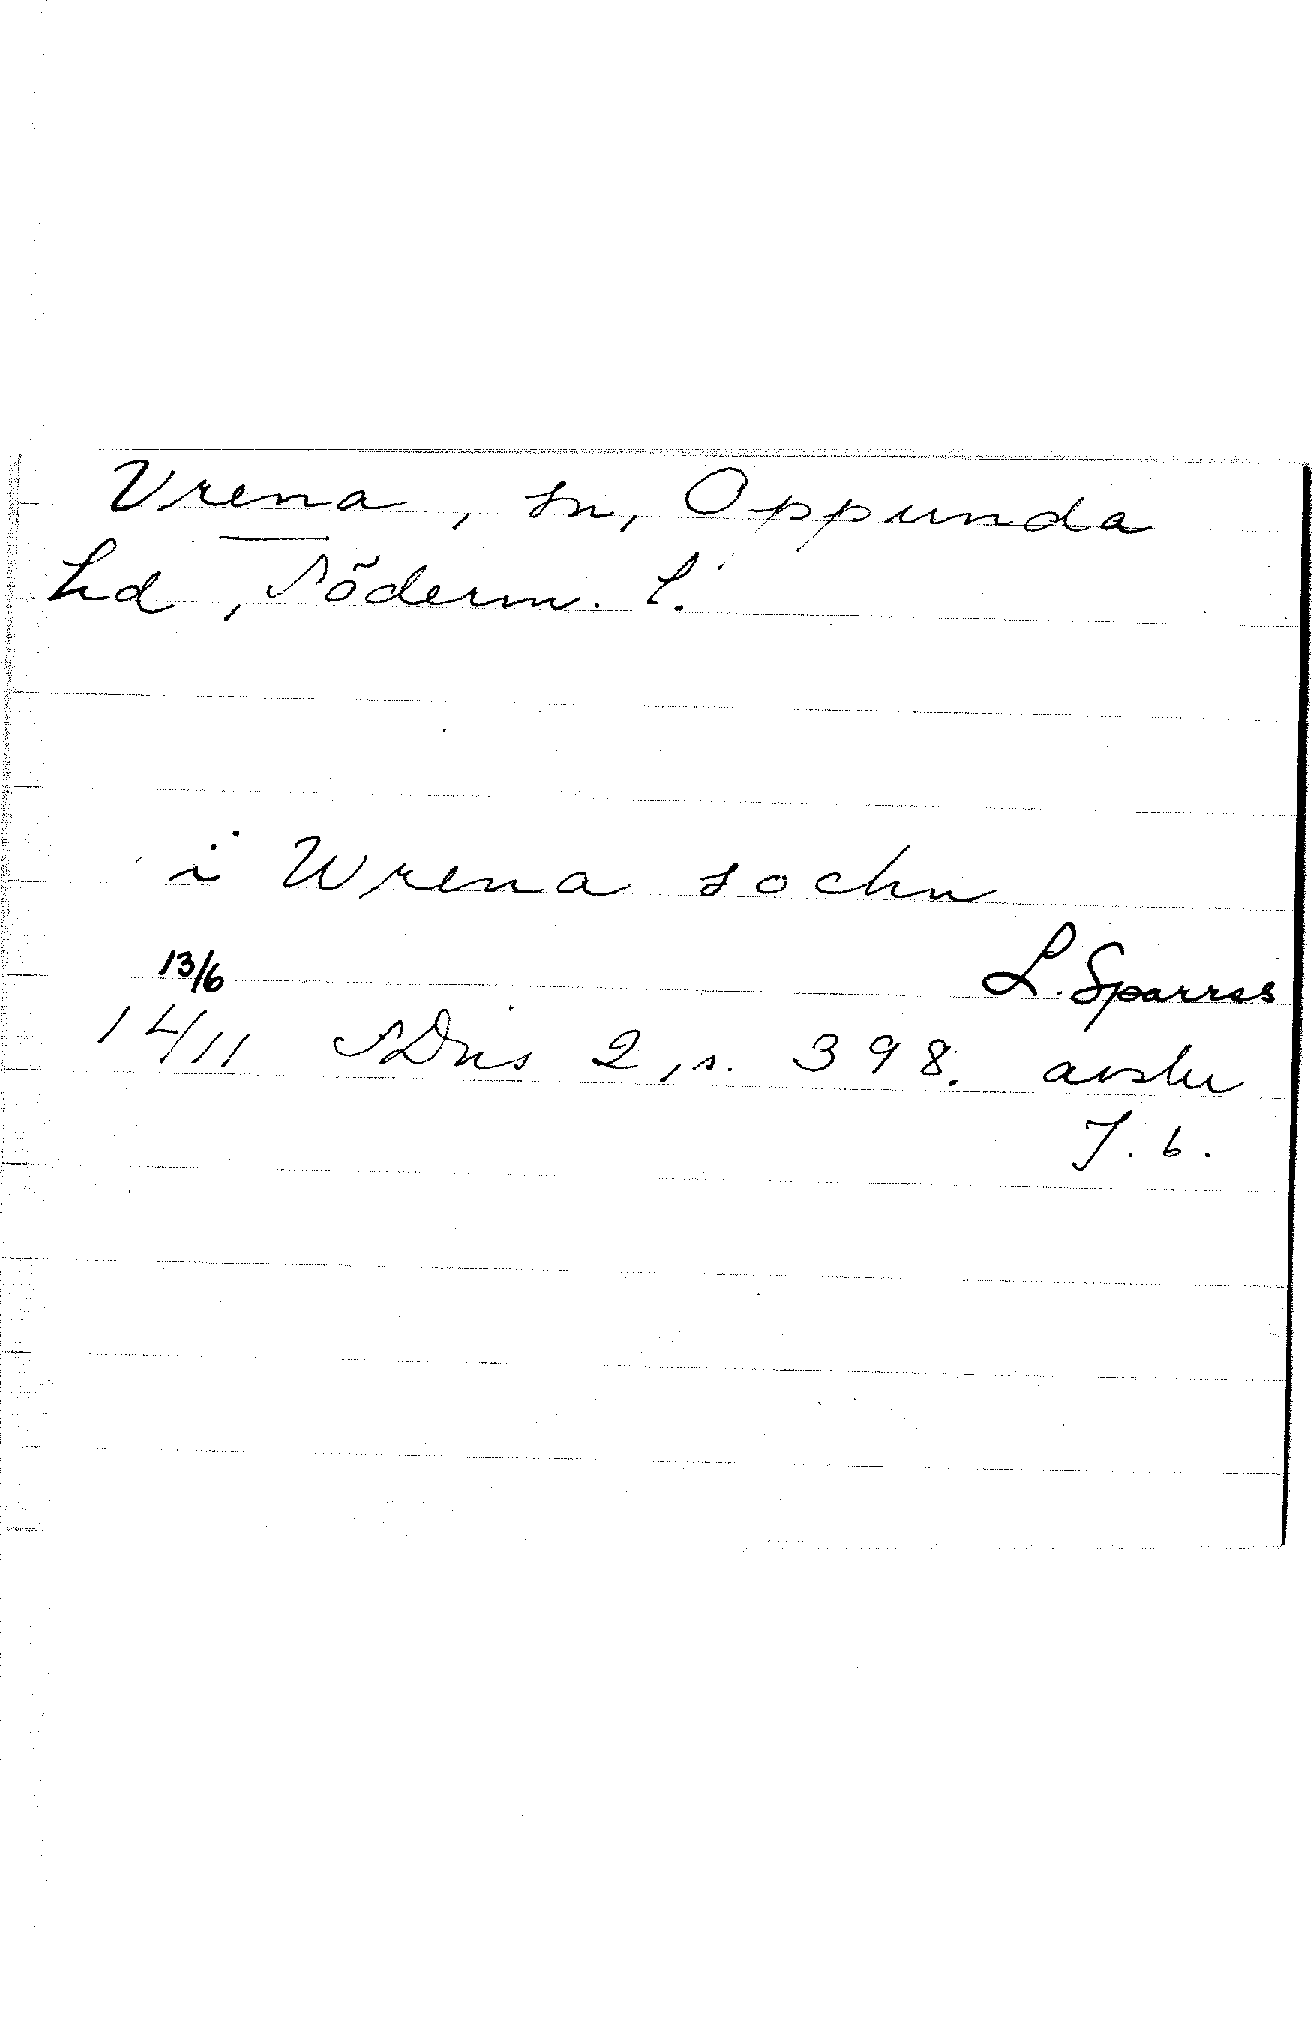 Vrena, sn, Oppunda
hd, Söderm. l.
i Wrena sochn
13/6 L. Sparres
1411 SDns 2, s. 398. avskr
J. b.